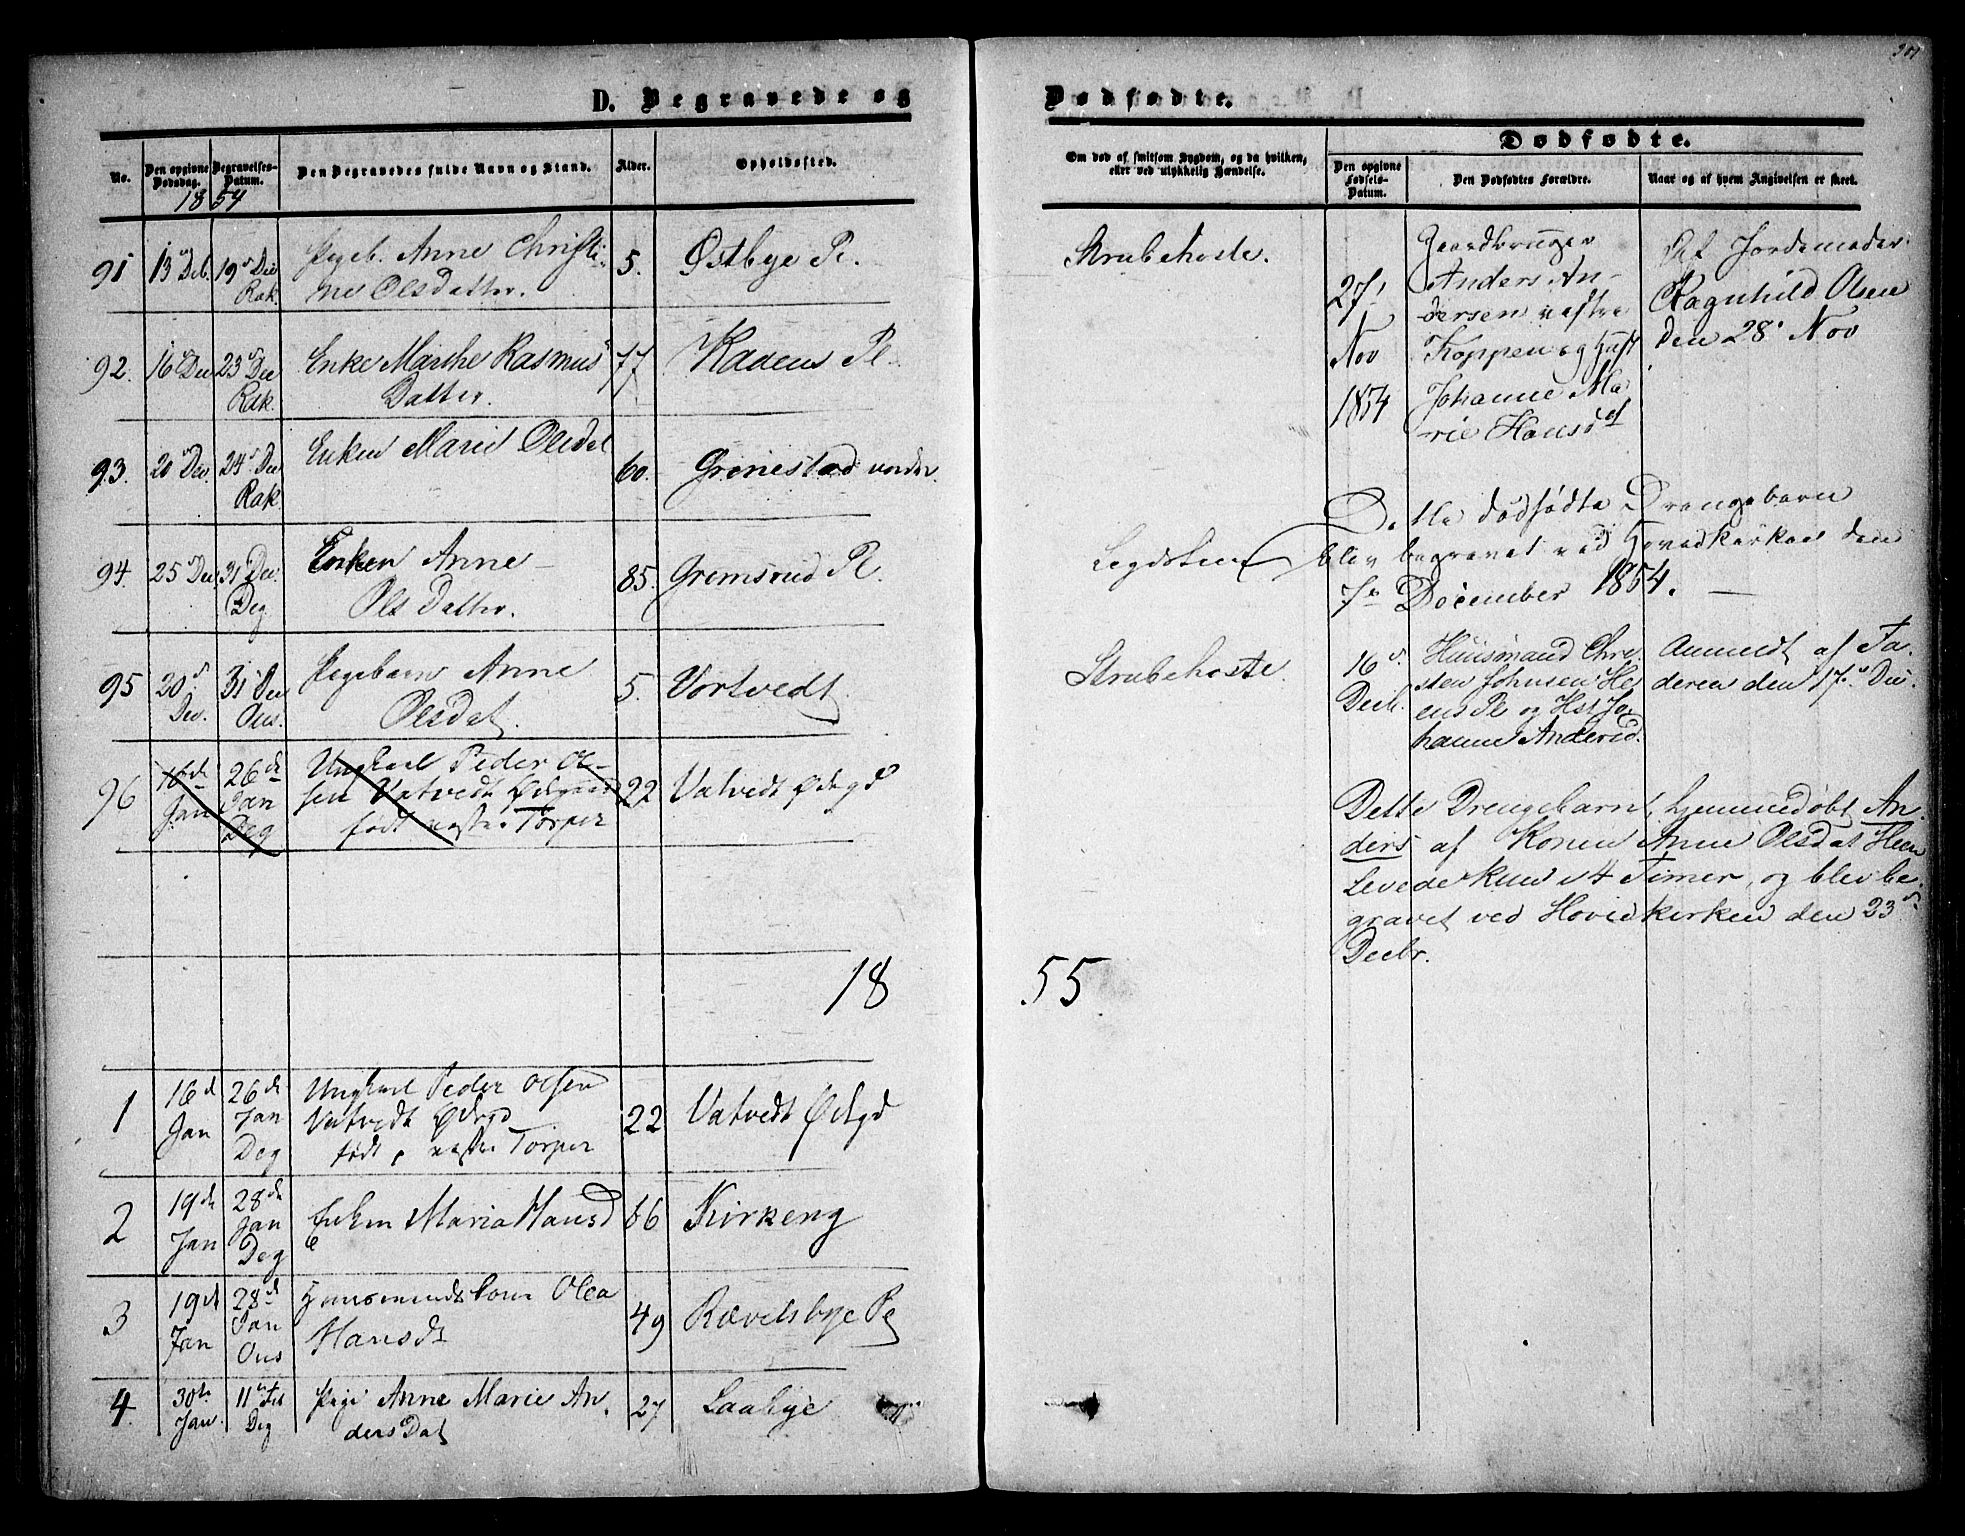 301
D. Begravede og
Dødfødte.
No.
Den opgivne Dødsdag.
Begravelses-Datum.
Den Begravedes fulde Navn og Stand.
Alder.
Opholdssted.
1854
91 13 Deb. 19 Dec Rak. Pigeb. Anne Christi-
ne Olsdatter. 5. Østbye Pl.
92. 16 Dec 23 Dec Rak. Enke Marthe Rasmus
Datter. 77 Kadens Pl.
93. 20 Dec. 24 Dec Rak Enken Marie Olsdat 60. Grønestad nordre.
94. 25 Dec. 31 Dec. Deg Enken Anne
Ols Datter. 85. Gremsrud Pl.
95 20 Dec. 31 Dec Ous. Pigebarn Anne
Olsdat. 5. Vortvedt.
96 16de Jan 26de Jan Deg Ungkarl Peder Ol-
sen Vatvedt Ødegaard
født vestre Torper 22 Vatvedt Ødegd
18
1 16d Jan 26de Jan Deg Ungkarl Peder Olsen
Vatvedt Ødegd
født, vestre Torper 22 Vatvedt Ødegd
2 19de Jan 28de Jan Deg Enken Maria Hansd 66 Kirkeng
3 19d Jan 28d Jan Ous Huusmandskone Olea
Hansdt 49 Rævelsbye Pl
4. 30te Jan. 11te Feb Deg Pige Anne Marie An-
ders Dat 27 Laabye
Om død af smitsom Sygdom, og da hvilken,
eller ved ulykkelig Hændelse.
Dødfødte.
Den opgivne Fødsels-Datum.
Den Dødfødtes Forældre.
Naar og af hvem Angivelsen er skeet.
Strubehoste.
27 Nov 1854
Gaardbruger
Anders An-
dersen vestre
Koppen og Hust
Johanne Ma-
rie Hansdt
Af Jordemoder
Ragnhild Olsen
den 28 Nov
Dette dødfødte Drengebarn
blev begravet ved Hovedkirken den
7de December 1854.
Strubehoste.
16 Decb.
Huusmand Chri-
sten Johnsen He-
ens Pl og Hst Jo-
hanne Andersd.
Anmeldt af Fa-
deren den 17 Dec.
Dette Drengebarn, hjemmedøbt An-
ders af Konen Anne Olsdat Heen
Levede kun 14 Timer, og blev be-
gravet ved Hovedkirken den 23
Decbr.
55